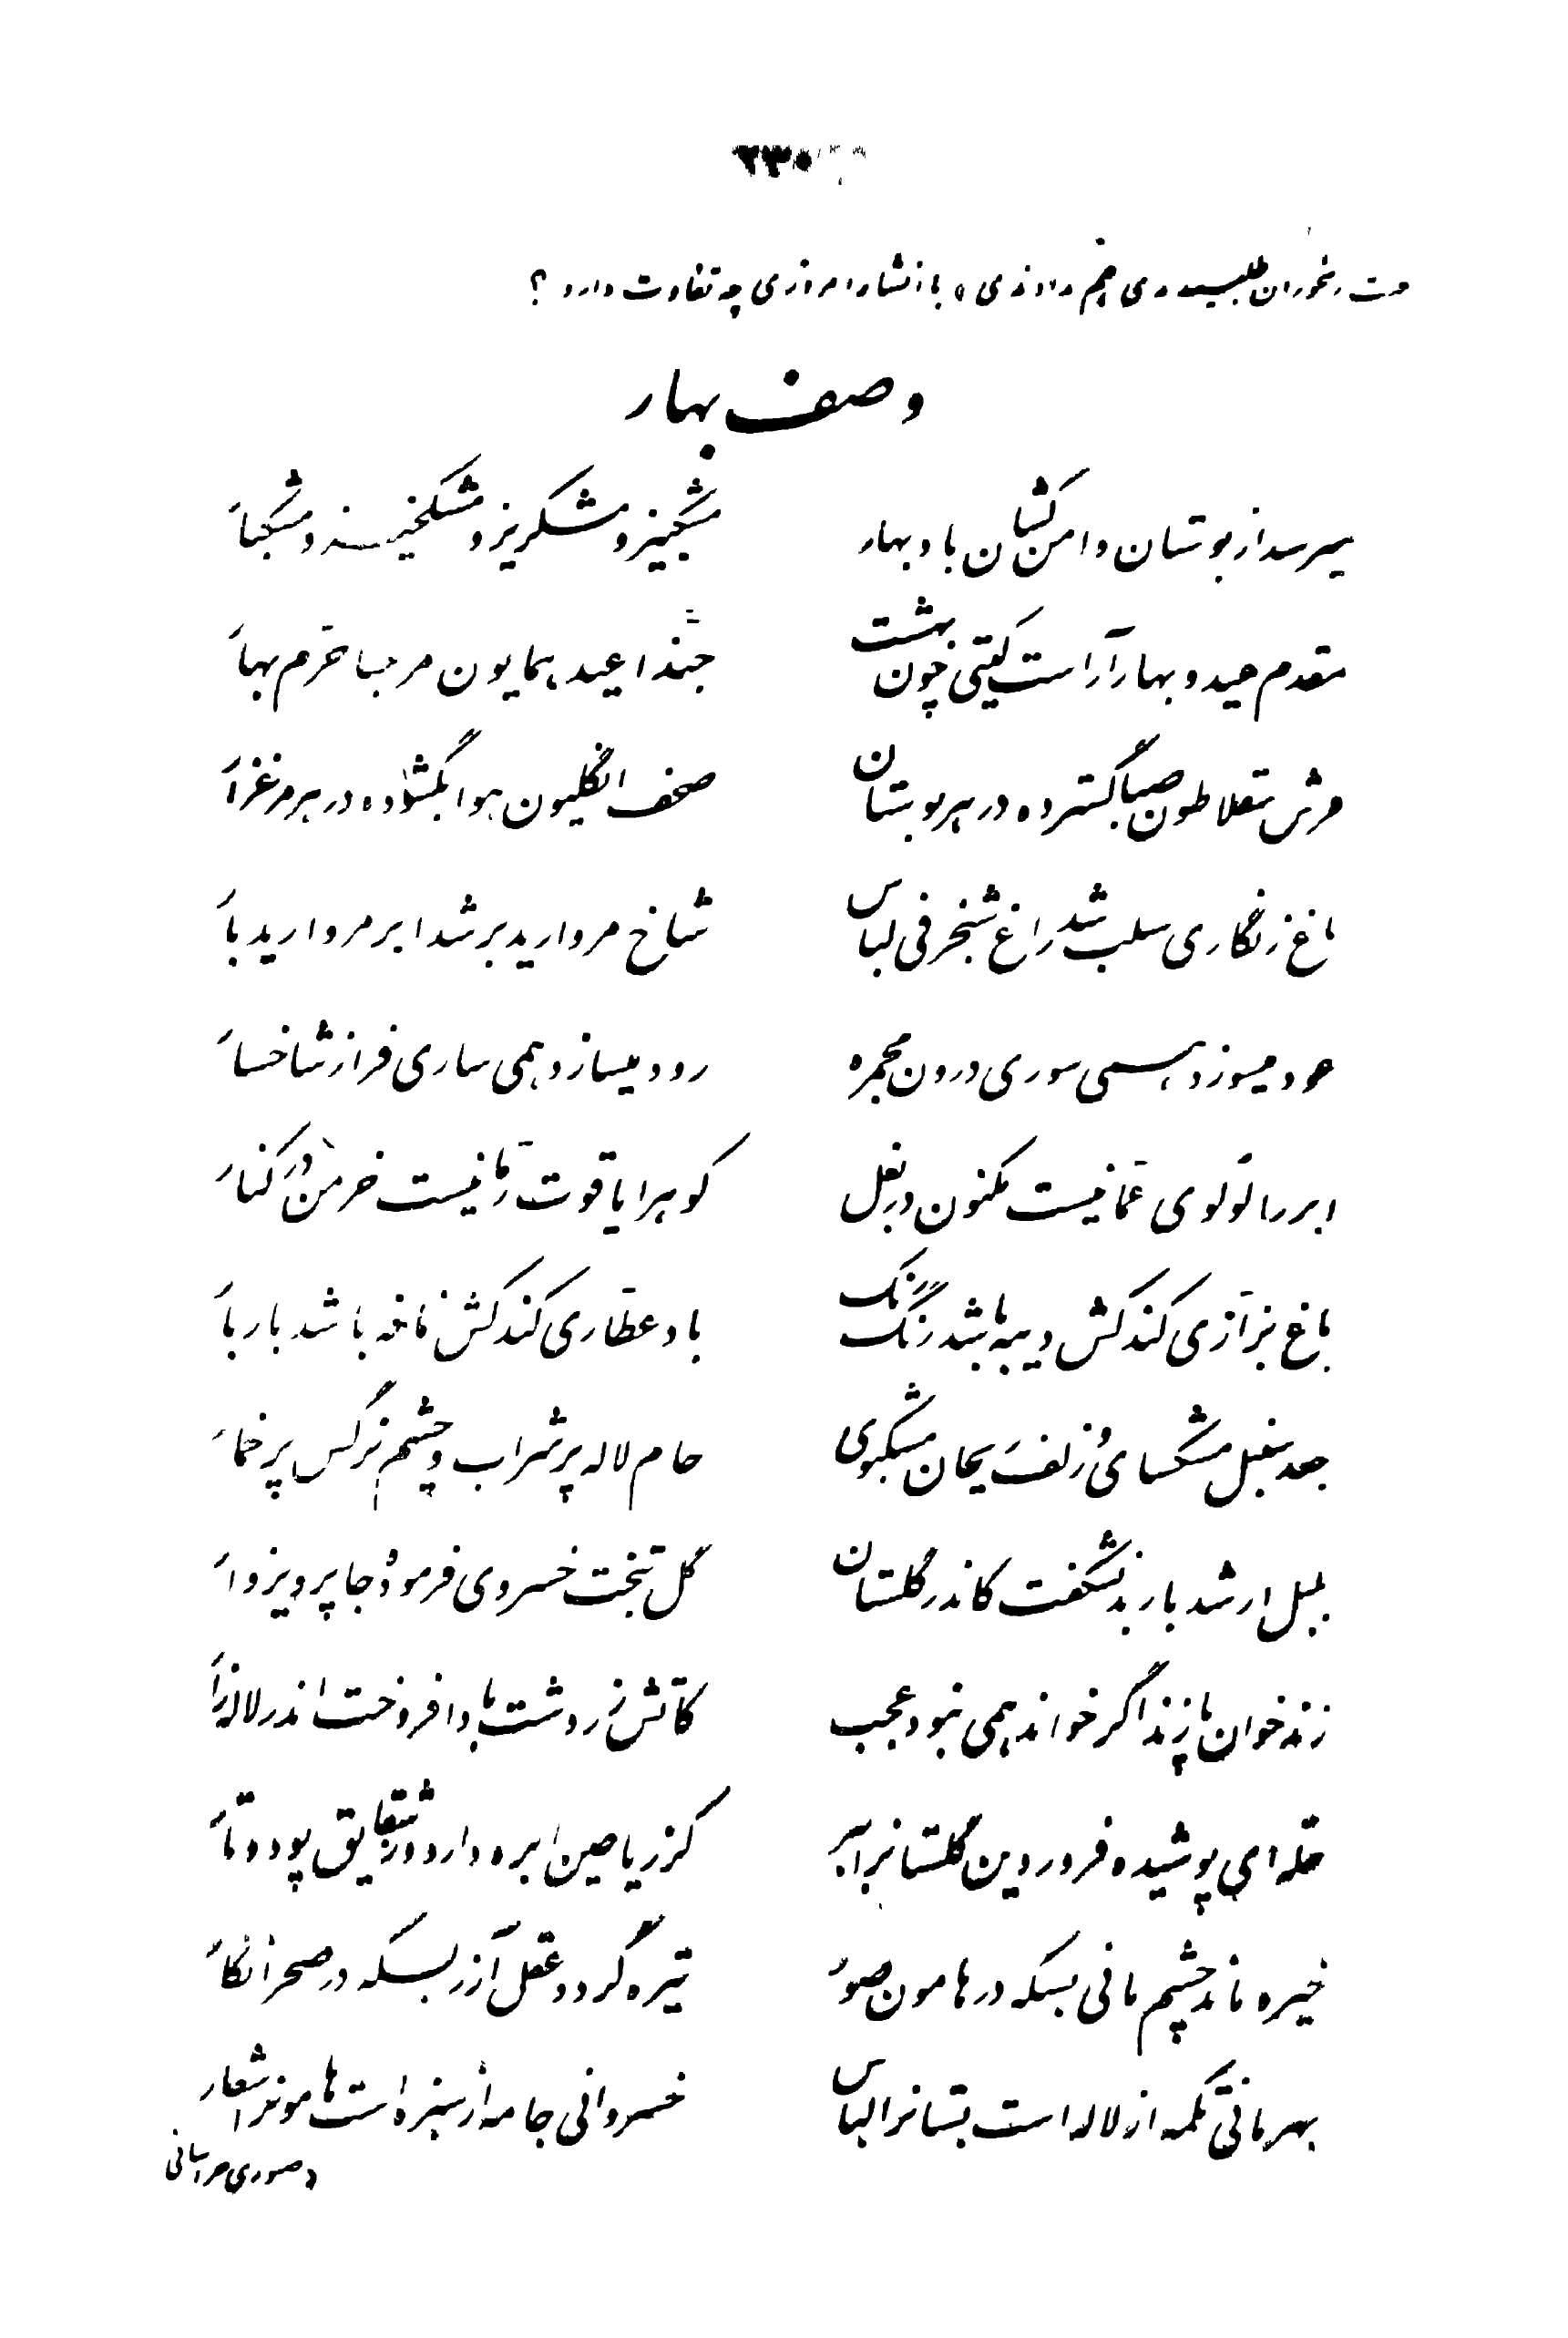 ۲۳۰
با انشاء امروزی چه تفاوت دارد ؟
وصف بهار
میرسد از بوستان دامن کشان باد بهار
مشکبیز و مشکریز و مشکخیز و مشکبار
مقدم عید و بهار آراست گیتی چون بهشت
حبّذا عید همایون مرحبا خرّم بهار
فرش بقلاطون صبا گسترده در هر بوستان
صحف انگلیون هوا بگشوده در هر مرغزار
باغ زنگاری سلب شد راغ شنجرفی لباس
شاخ مروارید بر شد ابر مروارید بار
عود میسوزد همی سوری درون مجمره
رود میسازد همی ساری فراز شاخسار
ابر را لولوی عمّانیست مکنون در بغل
کوه را یاقوت رمّانیست خرمن در کنار
باغ بزّازی کند کش دیبه باشد رنگ رنگ
باد عطّاری کند کش نافه باشد بار بار
جعد سنبل مشکسای و زلف ریحان مشکبوی
جام لاله پر شراب و چشم نرگس پر خمار
بلبل ار شد باربد نشگفت کاندر گلستان
گل بتخت خسروی فرمود جا پرویزوار
زند خوان پازند اگر خواند همی نبود عجب
کاتش زردشت باد افروخت اندر لاله‌زار
حله‌ای پوشیده فروردین گلستانرا ببر
کز ریاحین ابره دارد وز شقایق پود و تار
خیره ماند چشم مانی بسکه در هامون صور
تیره گردد عقل آزر بسکه در صحرا نگار
بهرمانی تکمه از لاله است بستانرا لباس
خسروانی جامه از سبزه است هامونرا شعار
صبوری خراسانی